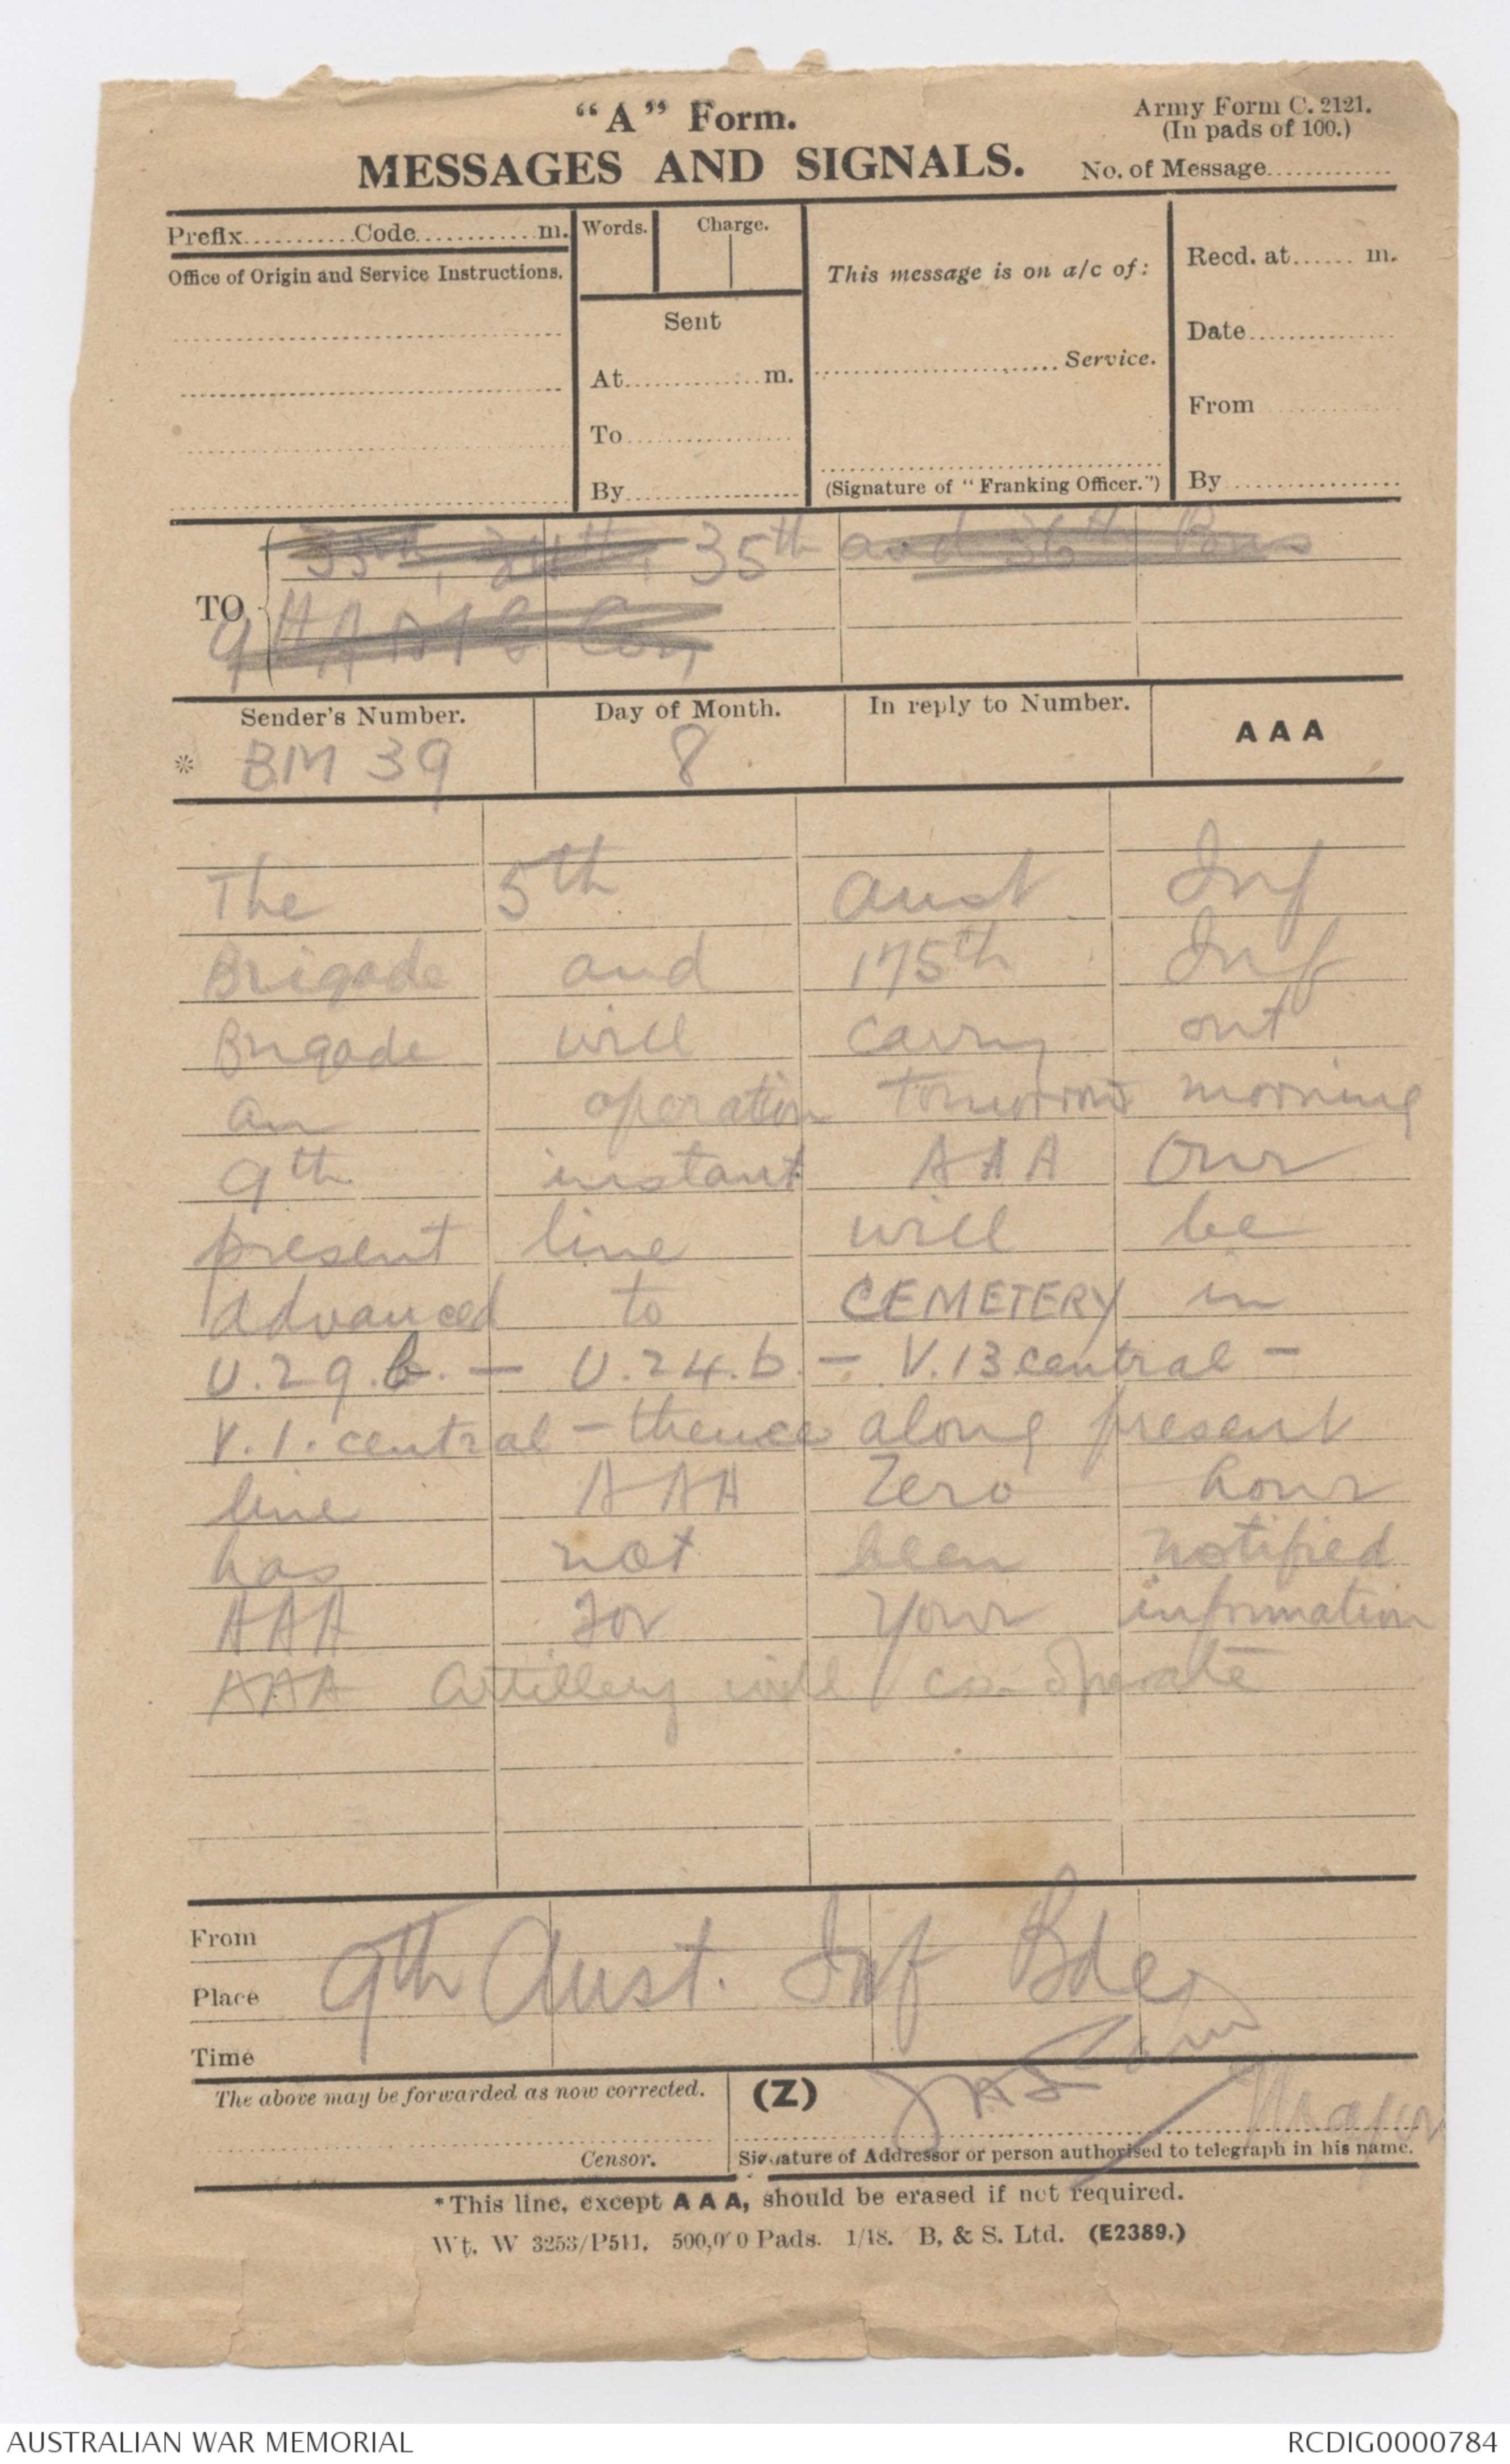 "A" Form.
Army Form C. 2121.
(In pads of 100.)
MESSAGES AND SIGNALS.
No. of Message.............
Prefix...........Code............m.
Words.
Charge.
This message is on a/c of:
Recd. at...... m.
Office of Origin and Service Instructions.
Sent
Date...............
At..............m.
..........................Service.
From
To.................
By..................
(Signature of "Franking Officer.")
By.................
TO
33rd, 34th, 35th and 36th Bns
9th
Coy
Sender's Number.
Day of Month.
In reply to Number.
AAA
* BM 39
8
The 5th Aust Inf
Brigade and 175th Inf
Brigade will carry out
an operation tomorrow morning
9th instant AAA Our
present line will be
advanced to CEMETERY in
U.29.b. - U.24.b. - V.13 central -
V.1. central - thence along present
line AAA Zero hour
has not been notified
AAA For your information
AAA Artillery will co-operate
From
Place 9th Aust. Inf Bde
Time
The above may be forwarded as now corrected.
(Z)
Major
Censor.
Signature of Addressor or person authorised to telegraph in his name.
*This line, except AAA, should be erased if not required.
Wt. W 3253/P511. 500,000 Pads. 1/18. B. & S. Ltd. (E2389.)
AUSTRALIAN WAR MEMORIAL
RCDIG0000784